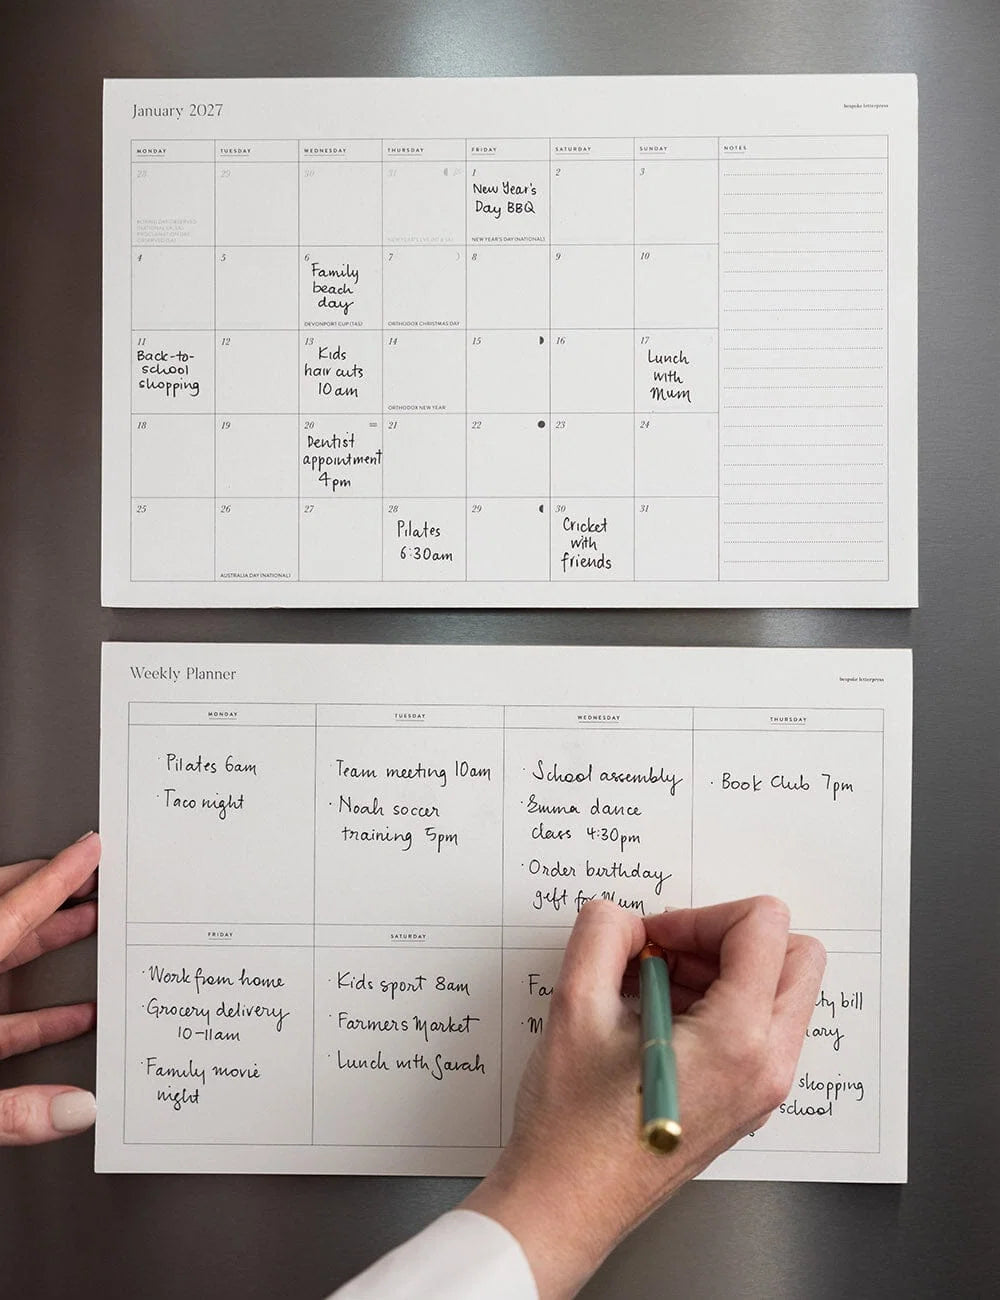 January 2027
bespoke letterpress
MONDAY TUESDAY WEDNESDAY THURSDAY FRIDAY SATURDAY SUNDAY NOTES
28 29 30 31 1 2 3
New Year's
Day BBQ
BOXING DAY OBSERVED
PROCLAMATION DAY
OBSERVED (SA)
NEW YEAR'S DAY (NATIONAL)
4 5 6 7 8 9 10
Family
beach
day
DEVONPORT CUP (TAS) ORTHODOX CHRISTMAS DAY
11 12 13 14 15 16 17
Back-to-
school
shopping
Kids
hair cuts
10am
Lunch
with
Mum
ORTHODOX NEW YEAR
18 19 20 21 22 23 24
Dentist
appointment
4pm
25 26 27 28 29 30 31
Pilates
6:30am
Cricket
with
friends
AUSTRALIA DAY (NATIONAL)
Weekly Planner
bespoke letterpress
MONDAY TUESDAY WEDNESDAY THURSDAY
· Pilates 6am
· Taco night
· Team meeting 10am
· Noah soccer
training 5pm
· School assembly
· Emma dance
class 4:30pm
· Order birthday
gift for Mum
· Book Club 7pm
FRIDAY SATURDAY
· Work from home
· Grocery delivery
10-11am
· Family movie
night
· Kids sport 8am
· Farmers Market
· Lunch with Sarah
bill
shopping
school